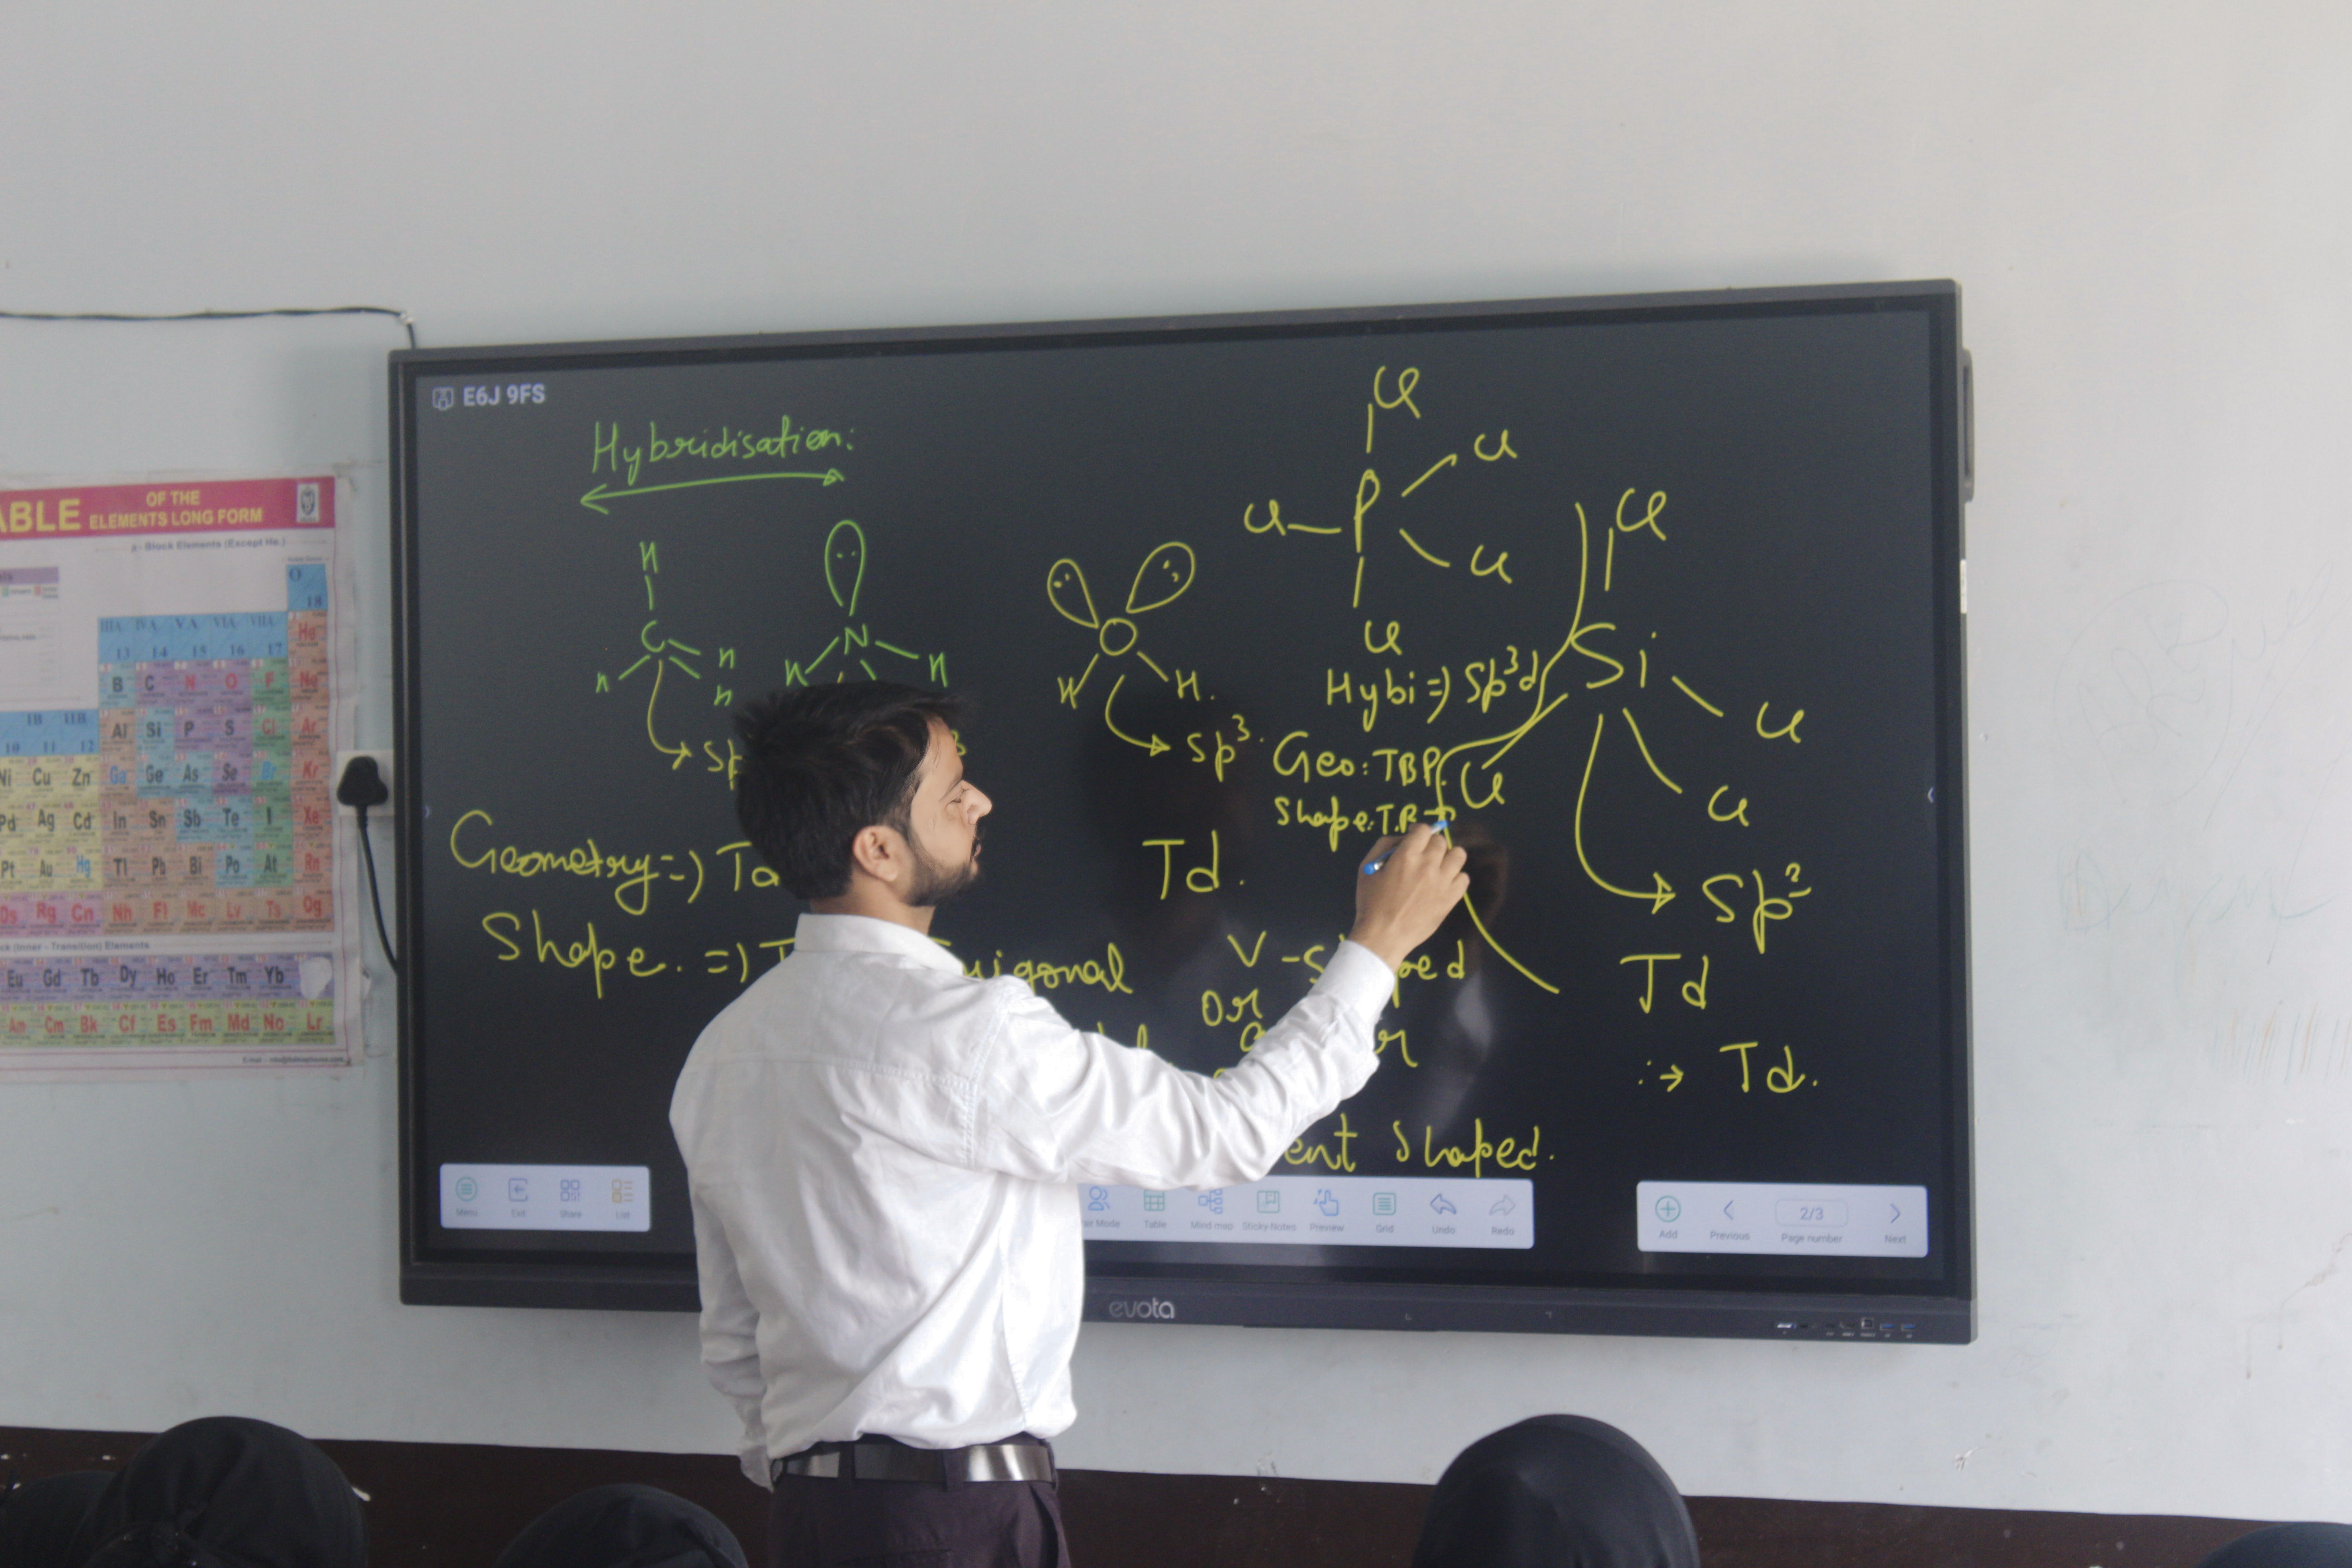 ABLE OF THE
ELEMENTS LONG FORM
p - Block Elements (Except He.)
O
18
IIIA IVA VA VIA VIIA He
13 14 15 16 17
B C N O F Ne
IB IIB Al Si P S Cl Ar
10 11 12
Ni Cu Zn Ga Ge As Se Br Kr
Pd Ag Cd In Sn Sb Te I Xe
Pt Au Hg Tl Pb Bi Po At Rn
Ds Rg Cn Nh Fl Mc Lv Ts Og
ck (Inner - Transition) Elements
Eu Gd Tb Dy Ho Er Tm Yb
Am Cm Bk Cf Es Fm Md No Lr
E6J 9FS
Hybridisation:
H
C
H H
H
N
H H
O
H H.
Sp³.
Cl
P
Cl Cl
Cl
Cl
Hybi => Sp³d
Geo: TBP
Shape:
Cl
Si
Cl Cl
Cl
Sp³
Td
Td.
Geometry =>
Td.
Shape. =>
V - 
or
Shaped.
Menu Exit Share List
Table Mind map Sticky Notes Preview Grid Undo Redo
Add Previous 2/3 Page number Next
evota